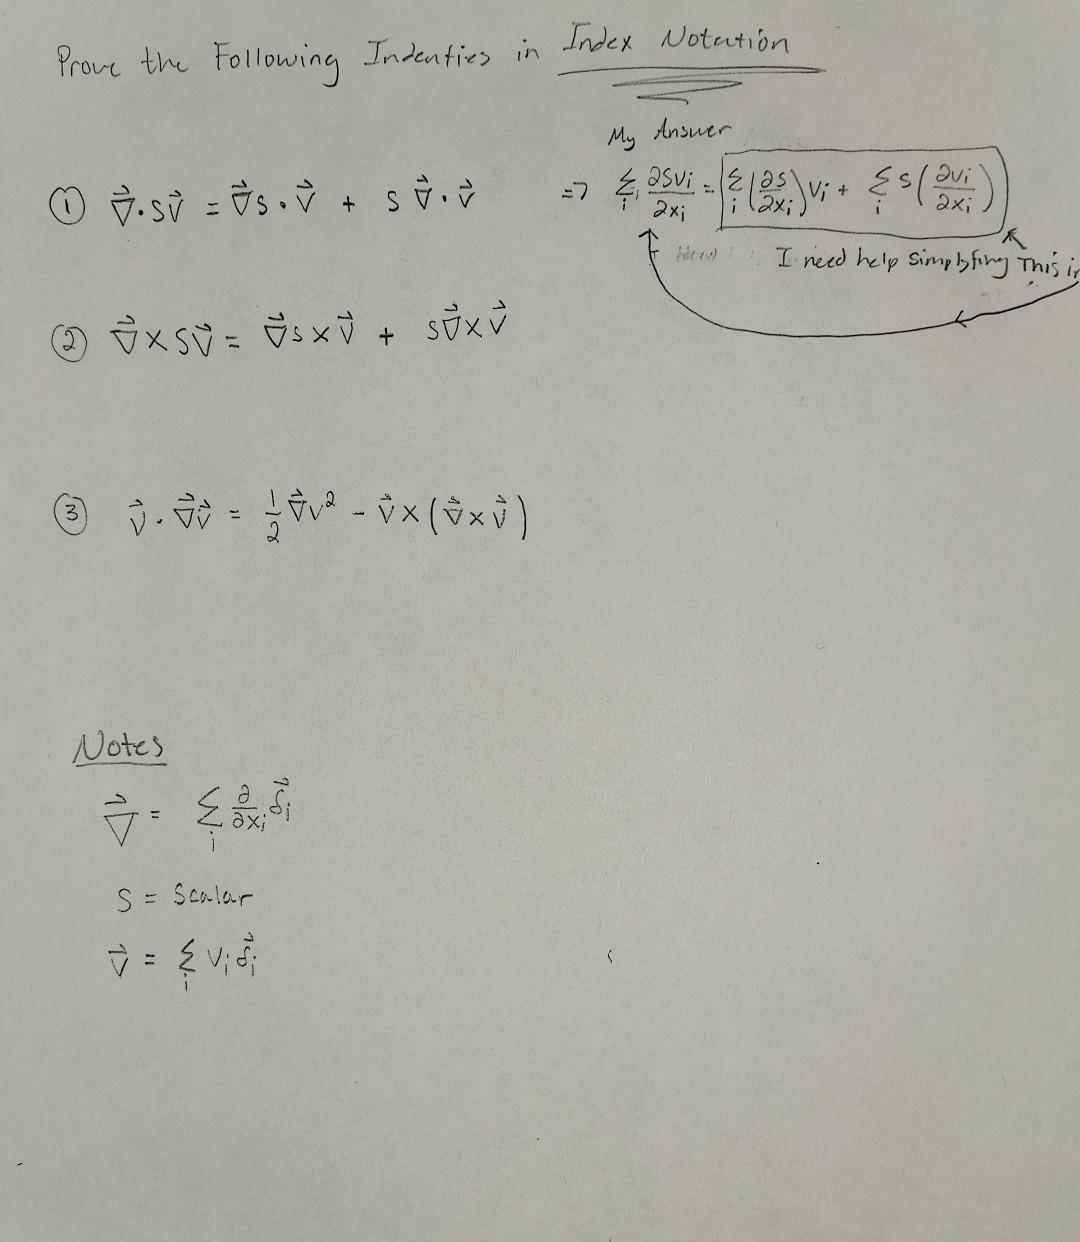 Prove the Following Indenties in Index Notation
My Answer
① ∇⃗·sv⃗ = ∇⃗s·v⃗ + s ∇⃗·v⃗ => Σᵢ ∂svᵢ/∂xᵢ = Σᵢ (∂s/∂xᵢ)vᵢ + Σᵢ s(∂vᵢ/∂xᵢ)
I need help simplyfing This in
② ∇⃗×sv⃗ = ∇⃗s×v⃗ + s∇⃗×v⃗
③ v⃗·∇⃗v⃗ = 1/2 ∇⃗v² - v⃗×(∇⃗×v⃗)
Notes
∇⃗ = Σᵢ ∂/∂xᵢ δ⃗ᵢ
S = Scalar
v⃗ = Σᵢ vᵢ δ⃗ᵢ